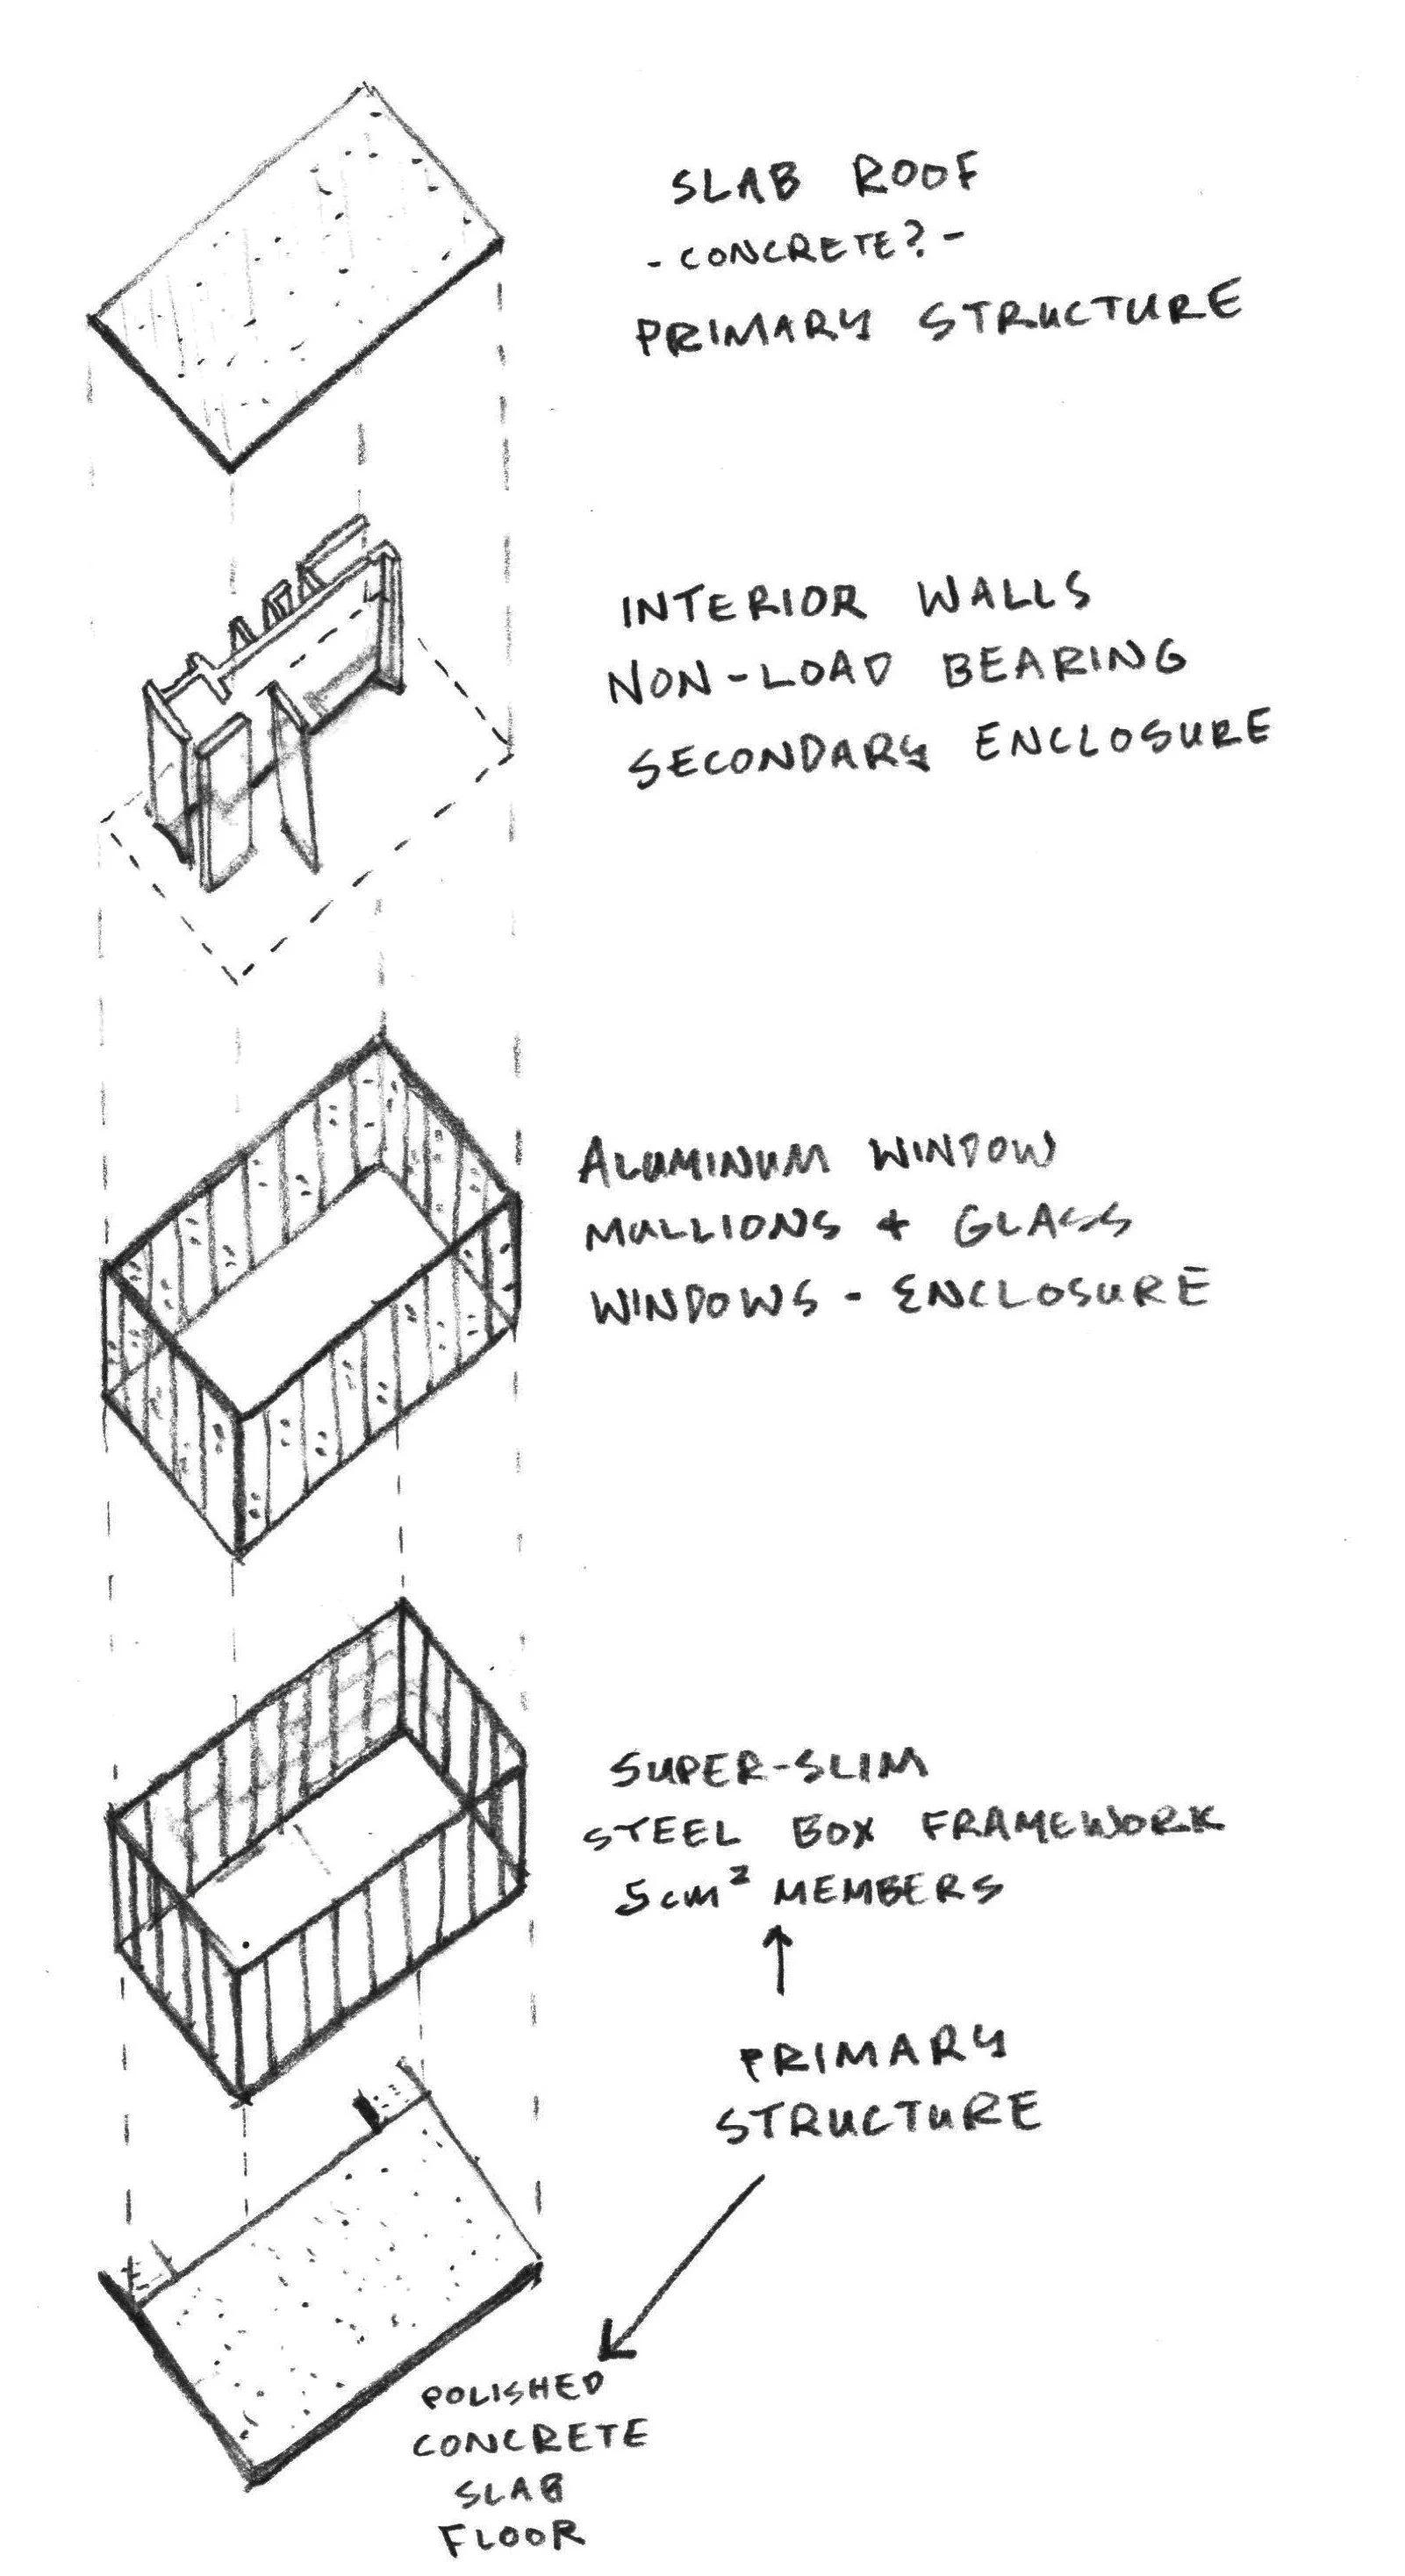 SLAB ROOF
- CONCRETE? -
PRIMARY STRUCTURE
INTERIOR WALLS
NON-LOAD BEARING
SECONDARY ENCLOSURE
ALUMINUM WINDOW
MULLIONS + GLASS
WINDOWS - ENCLOSURE
SUPER-SLIM
STEEL BOX FRAMEWORK
5cm² MEMBERS
PRIMARY
STRUCTURE
POLISHED
CONCRETE
SLAB
FLOOR